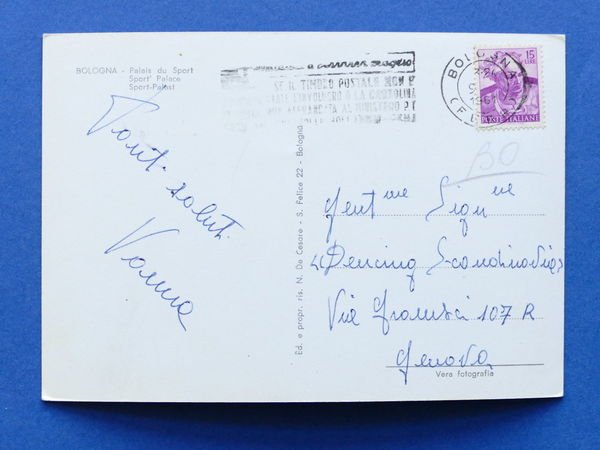 BOLOGNA - Palais du Sport
Sport' Palace
Sport-Palast
SE IL TIMBRO POSTALE NON È
L'INVOLUCRO O LA CARTOLINA
AL MINISTERO P.T.
BOLOGNA
1961
15
LIRE
POSTE ITALIANE
BO
Tanti saluti
Vanna
Gent.me Sign.ne
"Dencing Scandinavia"
Via Gramsci 107 R
Genova
Ed. e propr. ris. N. De Cesare - S. Felice 22 - Bologna
Vera fotografia